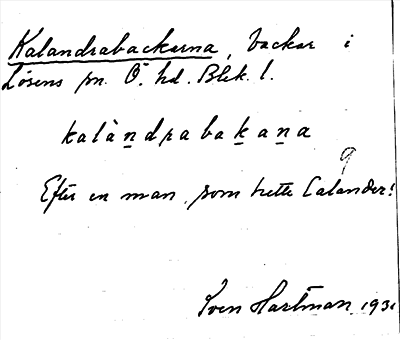 Kalandrabackarna, backar i
Lösens sn. Ö. hd. Blek. l.
kalàṉdrabaḵaṉa
Efter en man, som hette Calander!
Sven Hartman 1931